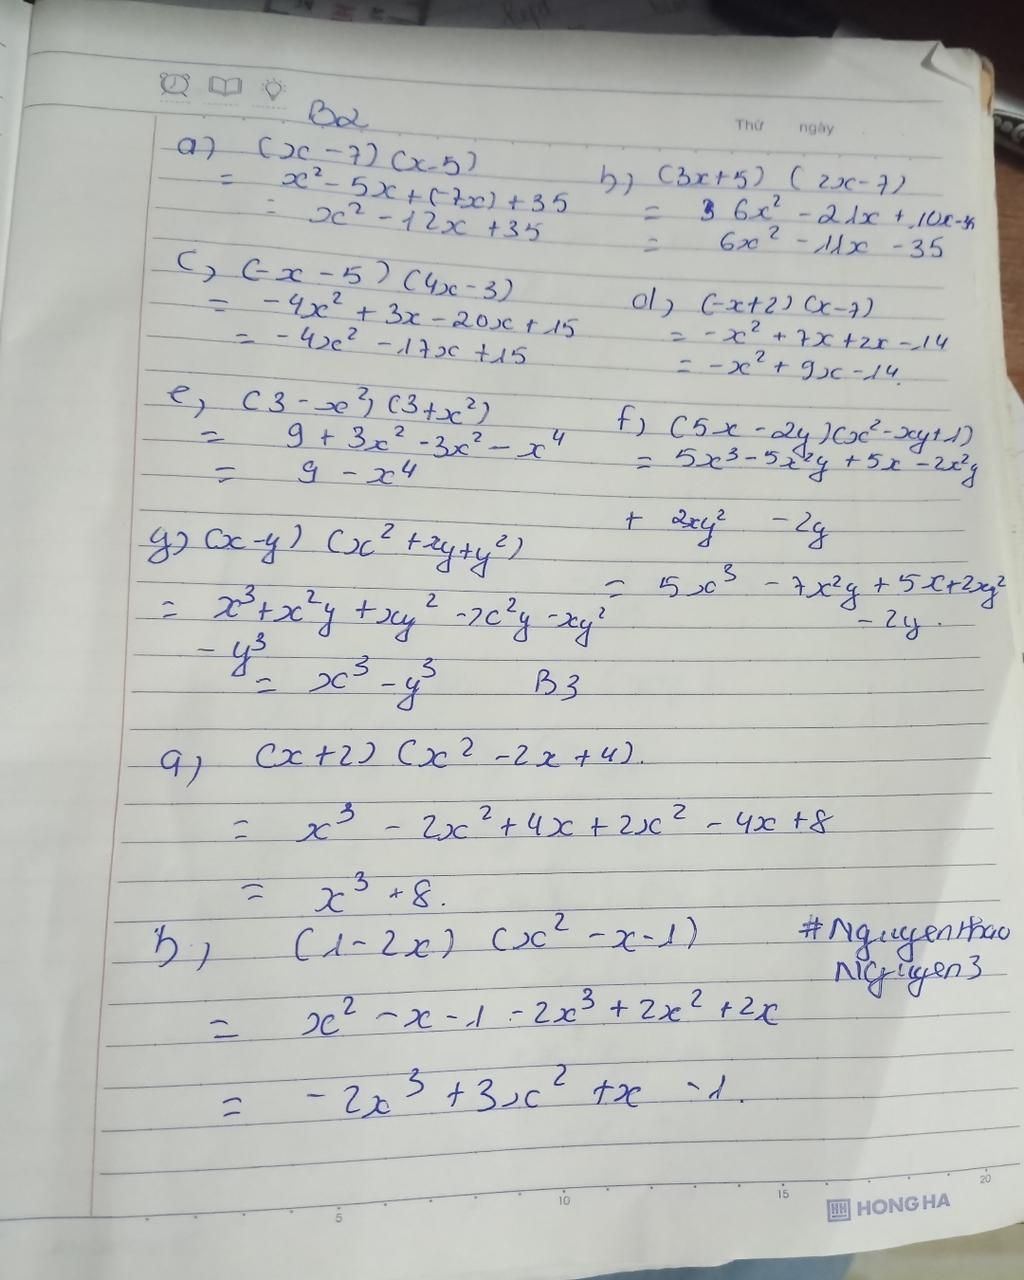 Thứ ngày
B2
a) (x - 7) (x - 5)
= x² - 5x + (-7x) + 35
= x² - 12x + 35
b) (3x + 5) (2x - 7)
= 6x² - 21x + 10x - 35
= 6x² - 11x - 35
c) (-x - 5) (4x - 3)
= -4x² + 3x - 20x + 15
= -4x² - 17x + 15
d) (-x + 2) (x - 7)
= -x² + 7x + 2x - 14
= -x² + 9x - 14.
e) (3 - x²) (3 + x²)
= 9 + 3x² - 3x² - x⁴
= 9 - x⁴
f) (5x - 2y) (x² - xy + 1)
= 5x³ - 5x²y + 5x - 2x²y
+ 2xy² - 2y
= 5x³ - 7x²y + 5x + 2xy²
- 2y.
g) (x - y) (x² + xy + y²)
= x³ + x²y + xy² - x²y - xy²
- y³
= x³ - y³
B3
a) (x + 2) (x² - 2x + 4).
= x³ - 2x² + 4x + 2x² - 4x + 8
= x³ + 8.
b) (1 - 2x) (x² - x - 1)
= x² - x - 1 - 2x³ + 2x² + 2x
= -2x³ + 3x² + x - 1.
#Nguyenthao
NGuyen3
5 10 15 20
HH HONG HA